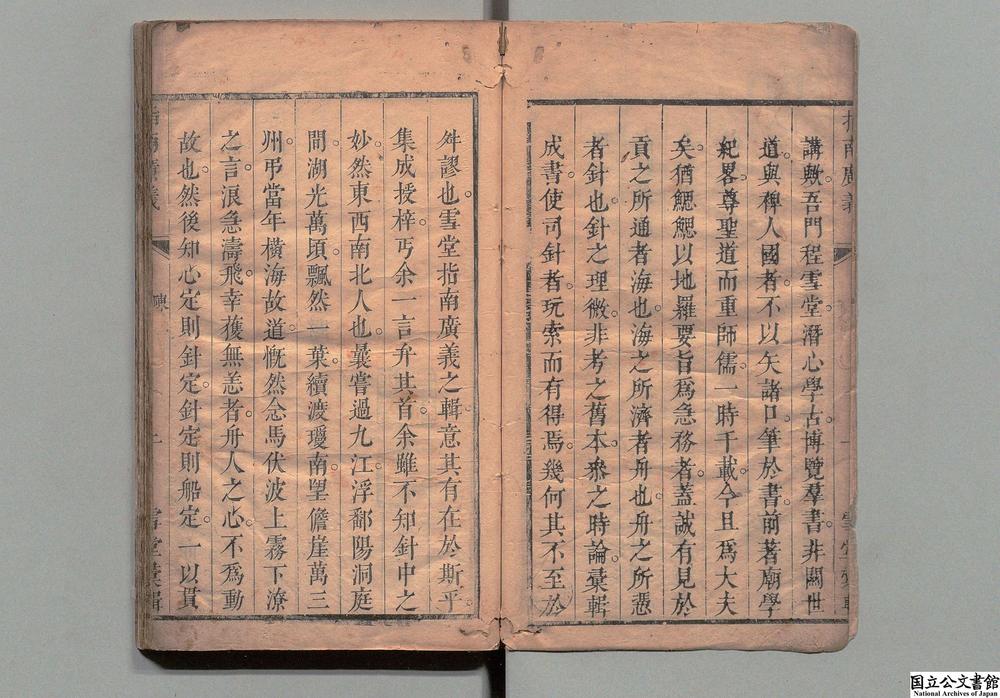 指南廣義 一 雪堂彙輯
講歟吾門程雪堂潛心學古博覽羣書非關世
道與稗人國者不以矢諸口筆於書前著廟學
紀畧尊聖道而重師儒一時千載今且爲大夫
矣猶鰓鰓以地羅要旨爲急務者蓋誠有見於
貢之所通者海也海之所濟者舟也舟之所憑
者針也針之理微非考之舊本叅之時論彙輯
成書使司針者玩索而有得焉幾何其不至於
舛謬也雪堂指南廣義之輯意其有在於斯乎
集成授梓丐余一言弁其首余雖不知針中之
妙然東西南北人也曩嘗過九江浮鄱陽洞庭
間湖光萬頃飄然一葉續渡瓊南望儋崖萬三
州弔當年橫海故道慨然念馬伏波上霧下潦
之言浪急濤飛幸獲無恙者舟人之心不爲動
故也然後知心定則針定針定則船定一以貫
指南廣義 陳 一 雪堂彙輯
国立公文書館
National Archives of Japan